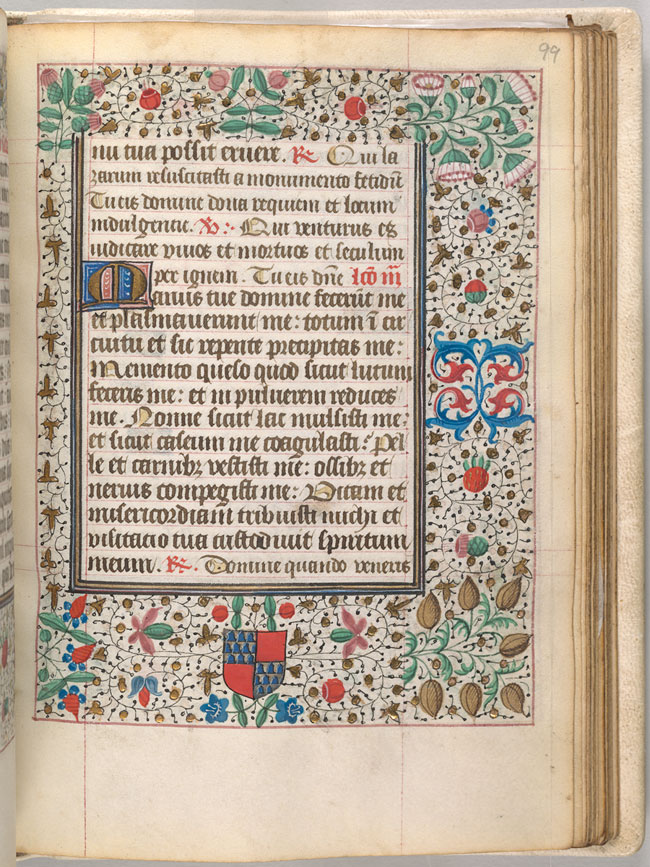 99
nu tua possit eruere. R. Qui la
zarum resuscitasti a monumento fetidū
Tu eis domine dona requiem et locum
indulgencie. V. Qui venturus es
iudicare vivos et mortuos et seculum
per ignem. Tu eis dñe lcō iii
Manus tue domine fecerūt me
et plasmaverunt me: totum ī cir
cuitu et sic repente precipitas me:
Memento queso quod sicut lutum
feceris me: et in pulverem reduces
me. Nonne sicut lac mulsisti me:
et sicut caseum me coagulasti: Pel
le et carnibꝫ vestisti me: ossibꝫ et
nervis compegisti me: Vitam et
misericordiam tribuisti michi et
visitacio tua custodivit spiritum
meum. R. Domine quando veneris